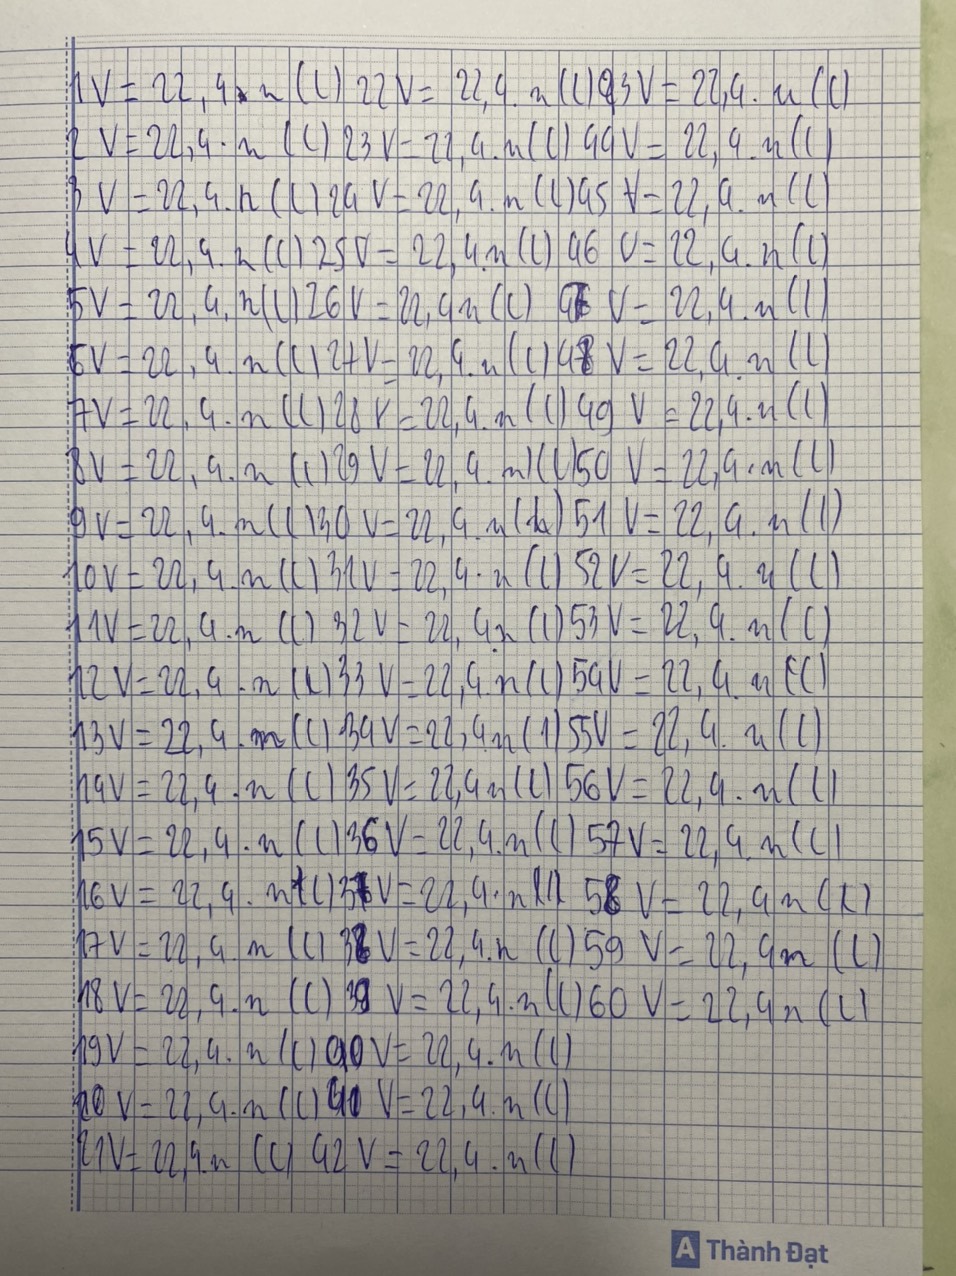 1V = 22,4. n (l) 22V = 22,4. n (l) 43V = 22,4. n (l)
2 V = 22,4. n (l) 23V = 22,4. n (l) 44V = 22,4. n (l)
3 V = 22,4. n (l) 24 V = 22,4. n (l) 45 V = 22,4. n (l)
4V = 22,4. n (l) 25V = 22,4. n (l) 46 V = 22,4. n (l)
5V = 22,4. n (l) 26V = 22,4 n (l) 47 V = 22,4. n (l)
6V = 22,4. n (l) 27V = 22,4. n (l) 48 V = 22,4. n (l)
7V = 22,4. n (l) 28 V = 22,4. n (l) 49 V = 22,4. n (l)
8V = 22,4. n (l) 29 V = 22,4. n) (l) 50 V = 22,4. n (l)
9V = 22,4. n (l) 30 V = 22,4. n (l) 51 V = 22,4. n (l)
10V = 22,4. n (l) 31V = 22,4. n (l) 52V = 22,4. n (l)
11V = 22,4. n (l) 32V = 22,4n (l) 53V = 22,4. n (l)
12V = 22,4. n (l) 33 V = 22,4. n (l) 54V = 22,4. n (l)
13V = 22,4. n (l) 34V = 22,4n (l) 55V = 22,4. n (l)
14V = 22,4. n (l) 35V = 22,4n (l) 56V = 22,4. n (l)
15V = 22,4. n (l) 36V = 22,4. n (l) 57V = 22,4. n (l)
16V = 22,4. n (l) 37V = 22,4. n (l) 58 V = 22,4n (l)
17V = 22,4. n (l) 38V = 22,4. n (l) 59 V = 22,4n (l)
18V = 22,4. n (l) 39 V = 22,4. n (l) 60 V = 22,4n (l)
19V = 22,4. n (l) 40V = 22,4. n (l)
20 V = 22,4. n (l) V = 22,4. n (l)
21V = 22,4. n (l) 42 V = 22,4. n (l)
A Thành Đạt